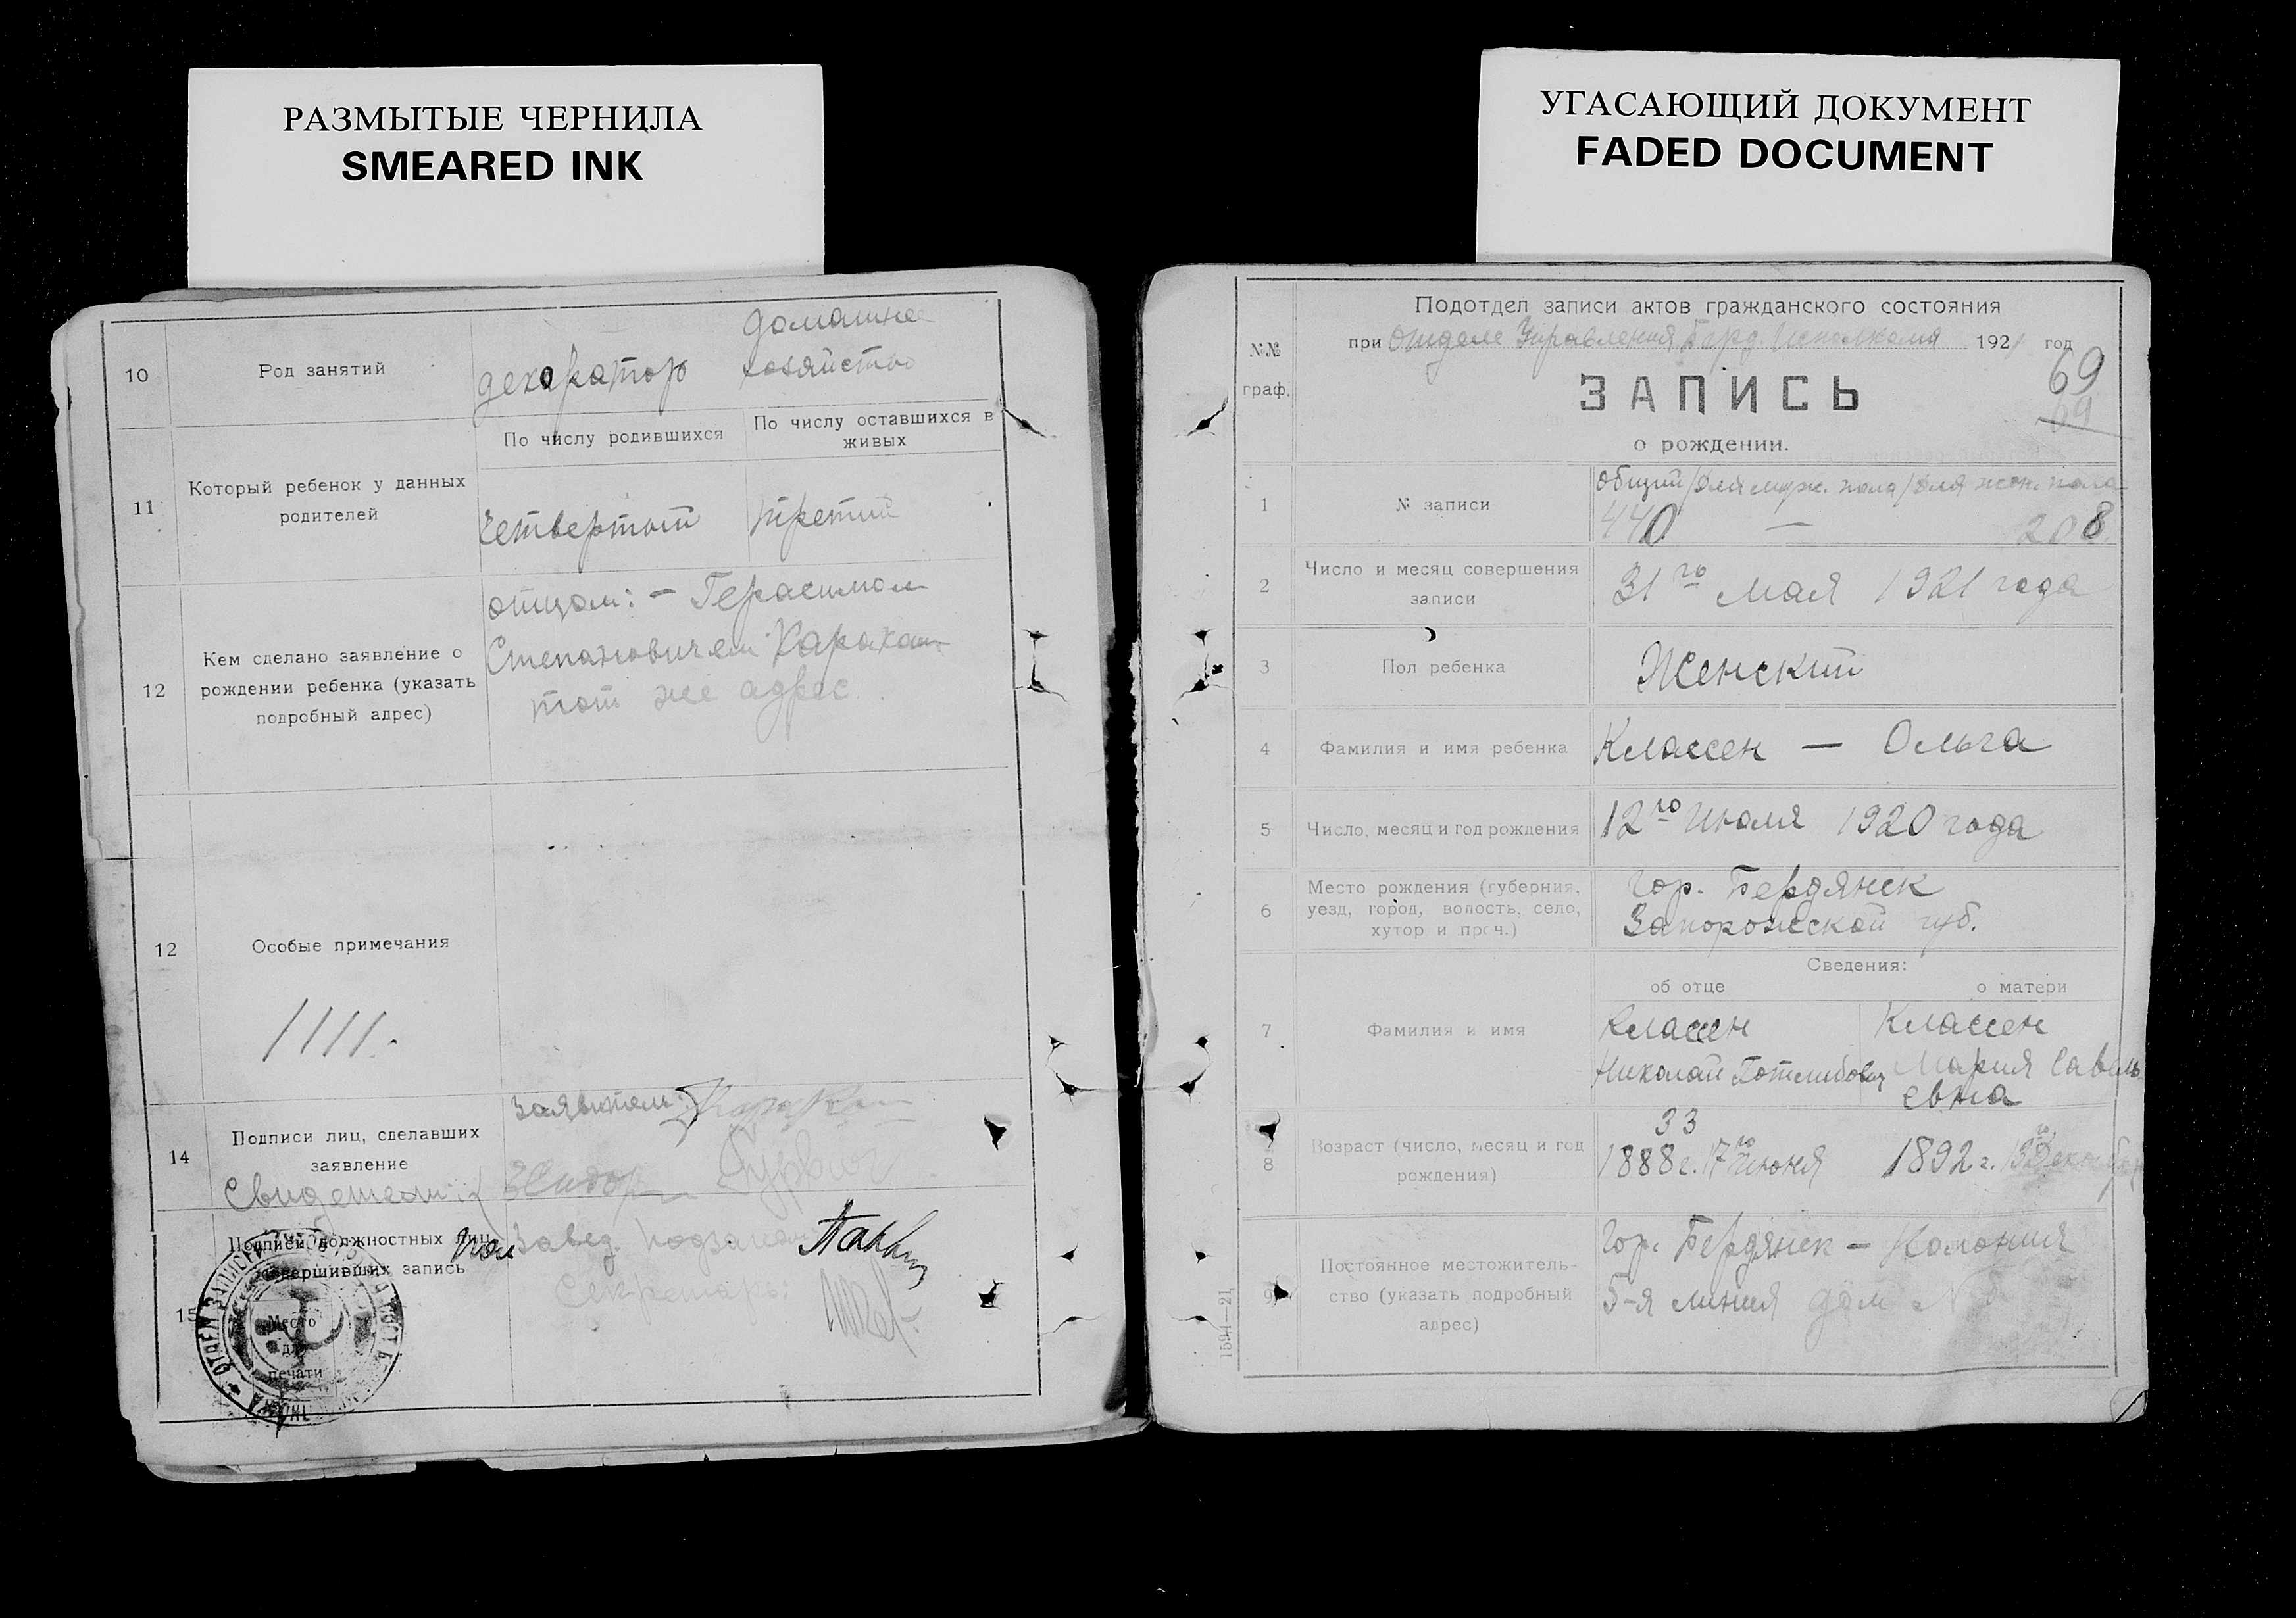 РАЗМЫТЫЕ ЧЕРНИЛА
SMEARED INK
10
Род занятий
декоратор
домашнее
хозяйство
11
Который ребенок у данных
родителей
По числу родившихся
По числу оставшихся в
живых
четвертый
третий
12
Кем сделано заявление о
рождении ребенка (указать
подробный адрес)
отцом: — Герасимом
Степановичем Карахан
тот же адрес
12
Особые примечания
14
Подписи лиц, сделавших
заявление
заявитель:
Свидетели:
15
Подписи должностных лиц,
совершивших запись
Завед.
Секретарь:
Место
для
печати
УГАСАЮЩИЙ ДОКУМЕНТ
FADED DOCUMENT
№№
граф.
Подотдел записи актов гражданского состояния
при отделе Управления Берд. Исполкома 1921 год
69
69
ЗАПИСЬ
о рождении.
1
№ записи
общий/для муж. пола/для жен. пола
440 — 208
2
Число и месяц совершения
записи
31го мая 1921 года
3
Пол ребенка
Женский
4
Фамилия и имя ребенка
Классен — Ольга
5
Число, месяц и год рождения
12го Июля 1920 года
6
Место рождения (губерния,
уезд, город, волость, село,
хутор и проч.)
гор. Бердянск
Запорожской губ.
Сведения:
об отце
о матери
7
Фамилия и имя
Классен
Николай Готлибович
Классен
Мария Савель
евна
8
Возраст (число, месяц и год
рождения)
33
1888 г. 17го Июня
1892 г. Декабря
9
Постоянное местожитель-
ство (указать подробный
адрес)
Гор. Бердянск — Колония
5-я линия дом №
1594—21